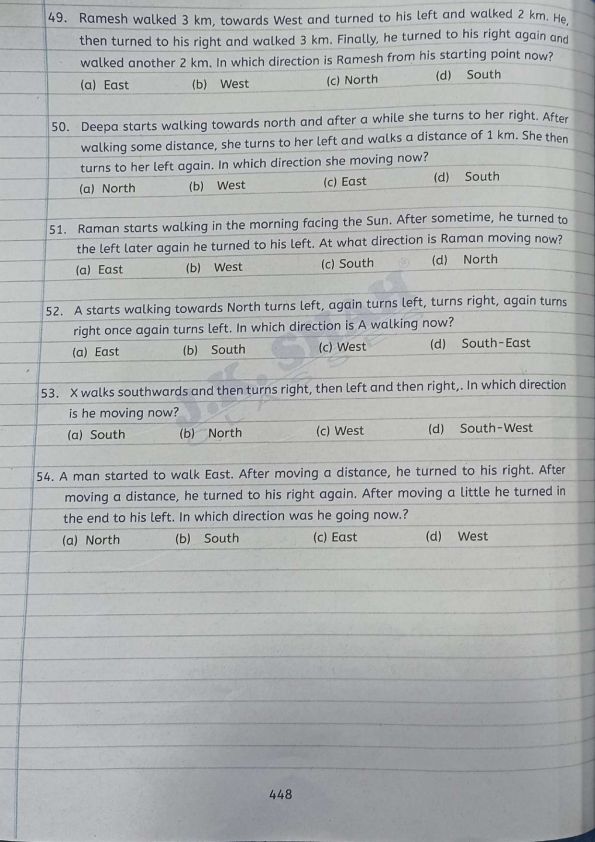 49. Ramesh walked 3 km, towards West and turned to his left and walked 2 km. He,
then turned to his right and walked 3 km. Finally, he turned to his right again and
walked another 2 km. In which direction is Ramesh from his starting point now?
(a) East (b) West (c) North (d) South
50. Deepa starts walking towards north and after a while she turns to her right. After
walking some distance, she turns to her left and walks a distance of 1 km. She then
turns to her left again. In which direction she moving now?
(a) North (b) West (c) East (d) South
51. Raman starts walking in the morning facing the Sun. After sometime, he turned to
the left later again he turned to his left. At what direction is Raman moving now?
(a) East (b) West (c) South (d) North
52. A starts walking towards North turns left, again turns left, turns right, again turns
right once again turns left. In which direction is A walking now?
(a) East (b) South (c) West (d) South-East
53. X walks southwards and then turns right, then left and then right,. In which direction
is he moving now?
(a) South (b) North (c) West (d) South-West
54. A man started to walk East. After moving a distance, he turned to his right. After
moving a distance, he turned to his right again. After moving a little he turned in
the end to his left. In which direction was he going now.?
(a) North (b) South (c) East (d) West
J.K. SHAH
CLASSES
448